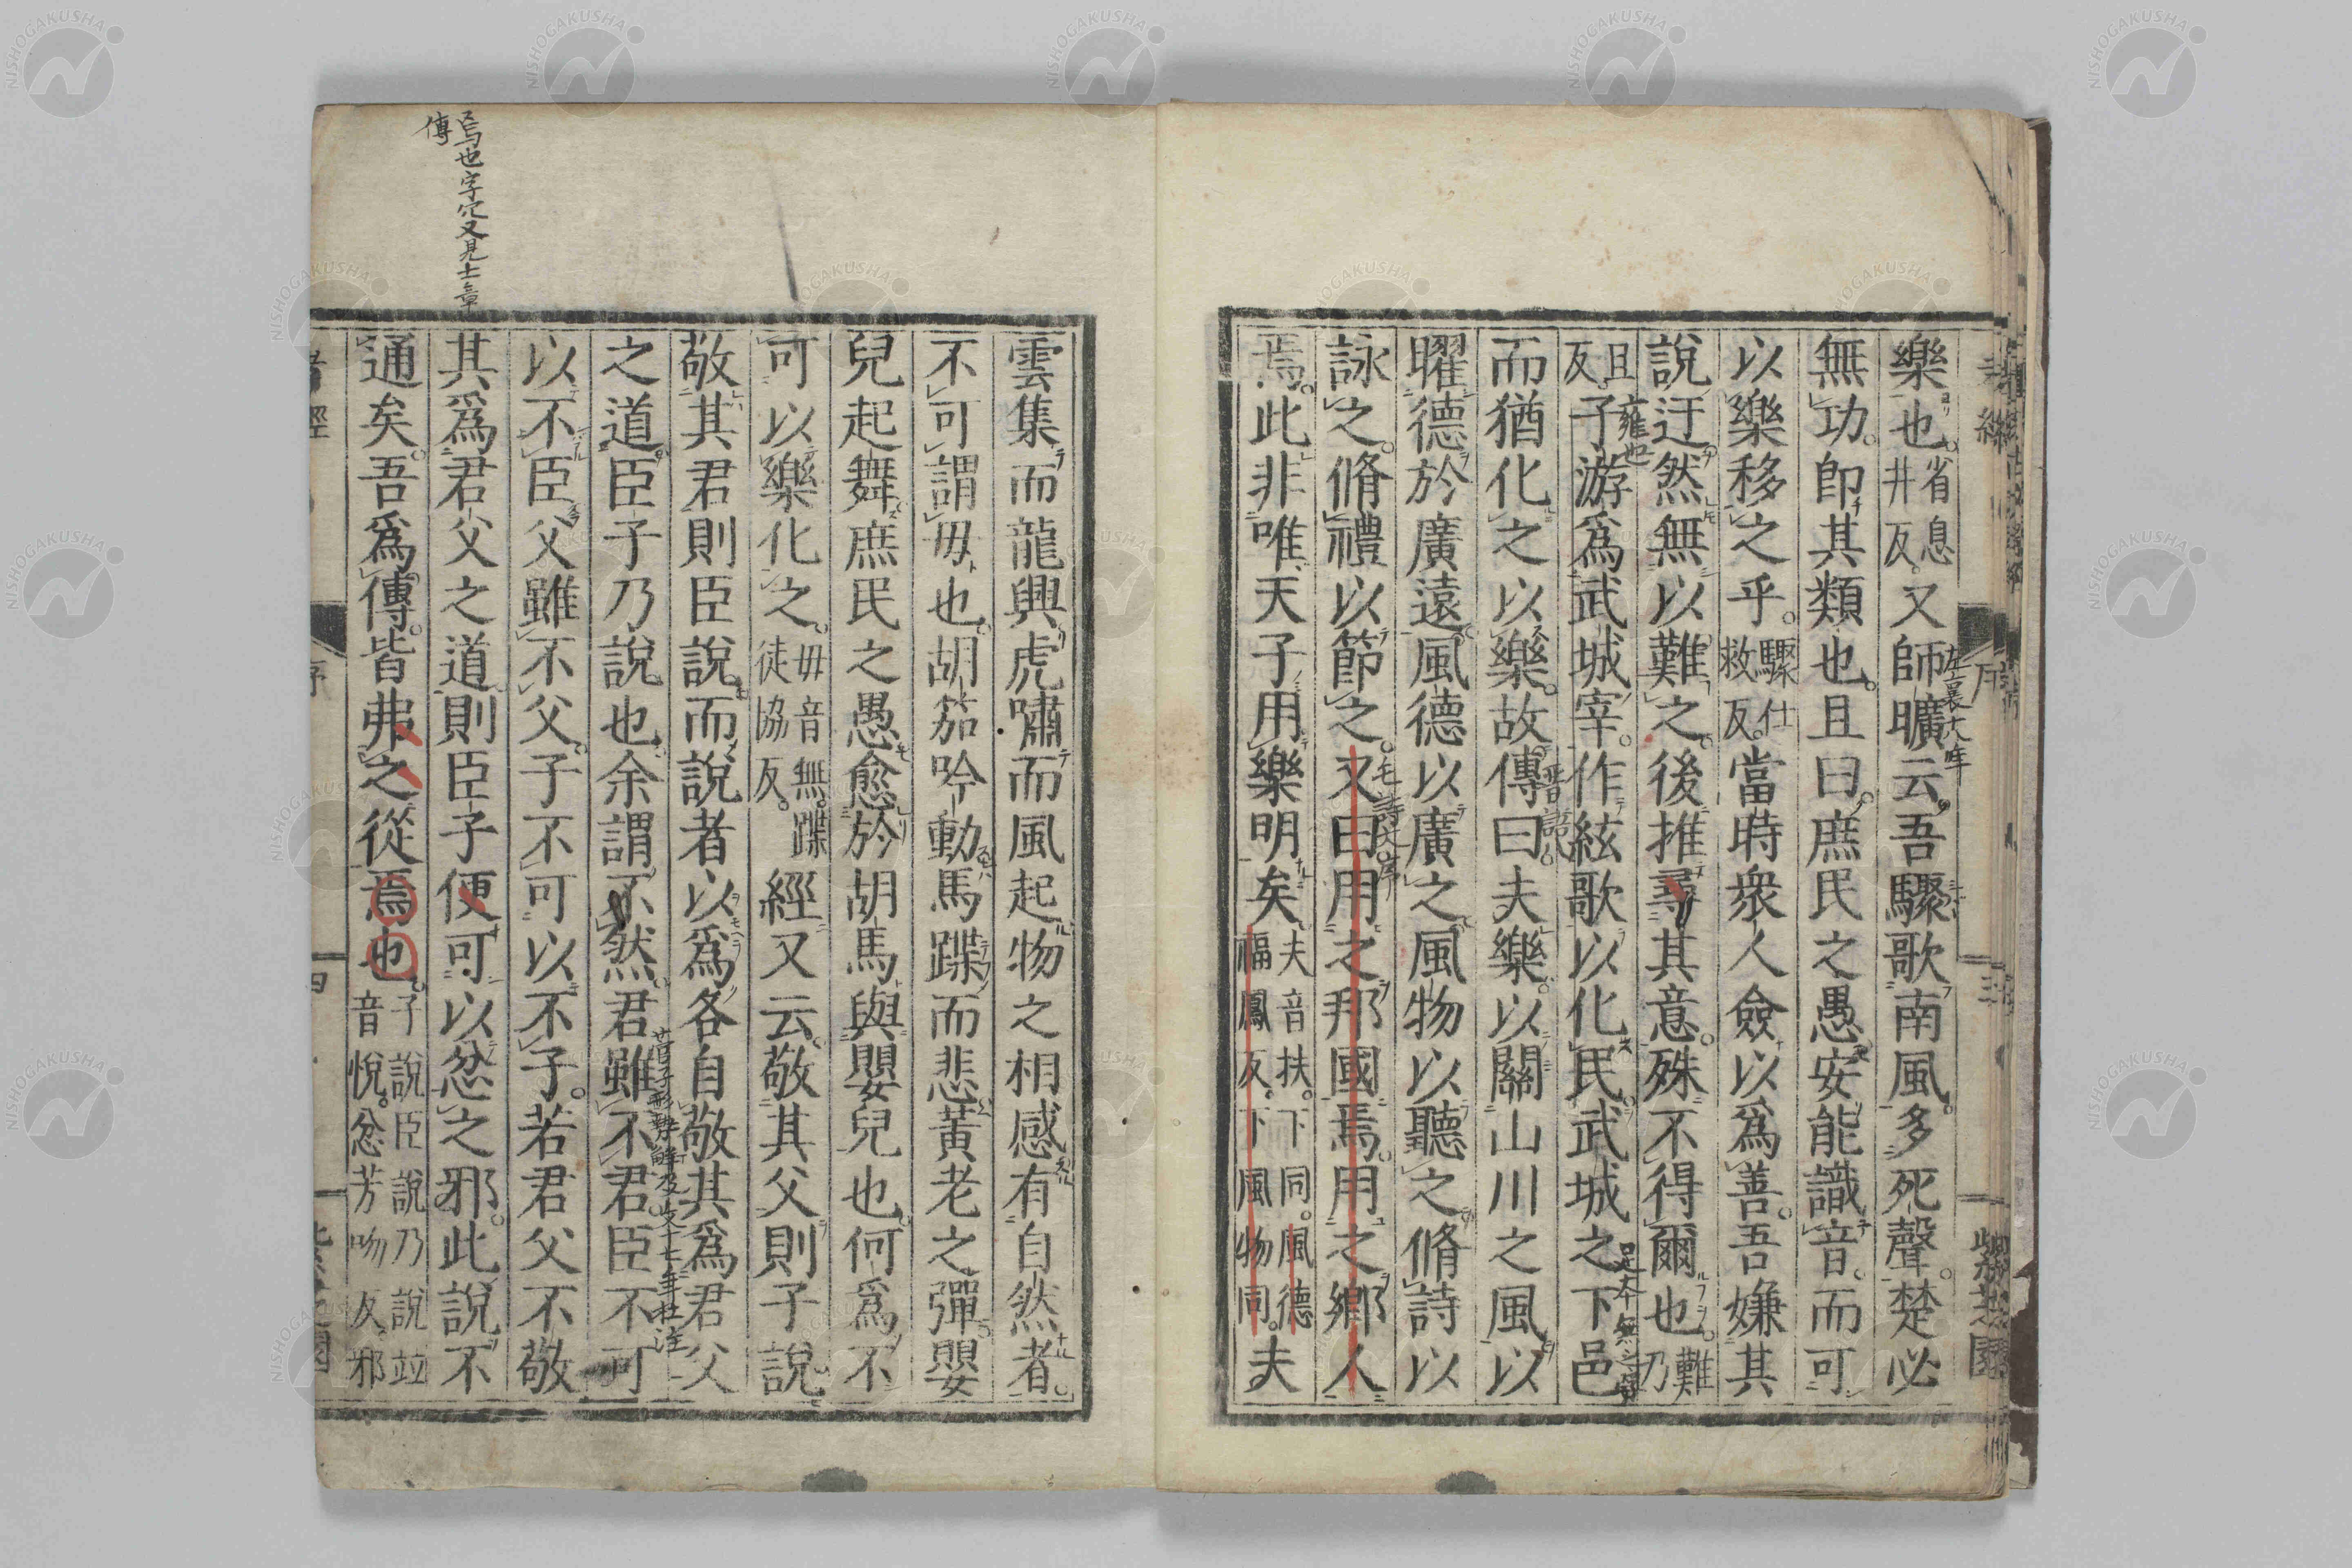 樂也省息井反又師曠云吾驟歌南風多死聲楚必
無功即其類也且曰庶民之愚安能識音而可
以樂移之乎驟仕救反當時衆人僉以爲善吾嫌其
說迂然無以難之後推尋其意殊不得爾也難乃
且反子游爲武城宰作絃歌以化民武城之下邑
而猶化之以樂故傳曰夫樂以關山川之風以
曜德於廣遠風德以廣之風物以聽之脩詩以
詠之脩禮以節之又曰用之邦國焉用之鄉人
焉此非唯天子用樂明矣夫音扶下同風德福鳳反下風物同夫
雲集而龍興虎嘯而風起物之相感有自然者
不可謂毋也胡笳吟動馬蹀而悲黃老之彈嬰
兒起舞庶民之愚愈於胡馬與嬰兒也何爲不
可以樂化之毋音無蹀徒協反經又云敬其父則子說
敬其君則臣說而說者以爲各自敬其爲君父
之道臣子乃說也余謂不然君雖不君臣不可
以不臣父雖不父子不可以不子若君父不敬
其爲君父之道則臣子便可以忿之邪此說不
通矣吾爲傳皆弗之從焉也子說臣說乃說竝音悅忿芳吻反邪
孝經
序
三
紫芝園
孝經
序
四
紫芝園
左襄十八年
雍也
晉語八
毛詩大序
足本無之字
管子形勢解及文十七年杜注
焉也字冗又見士章
傳
NISHOGAKUSHA